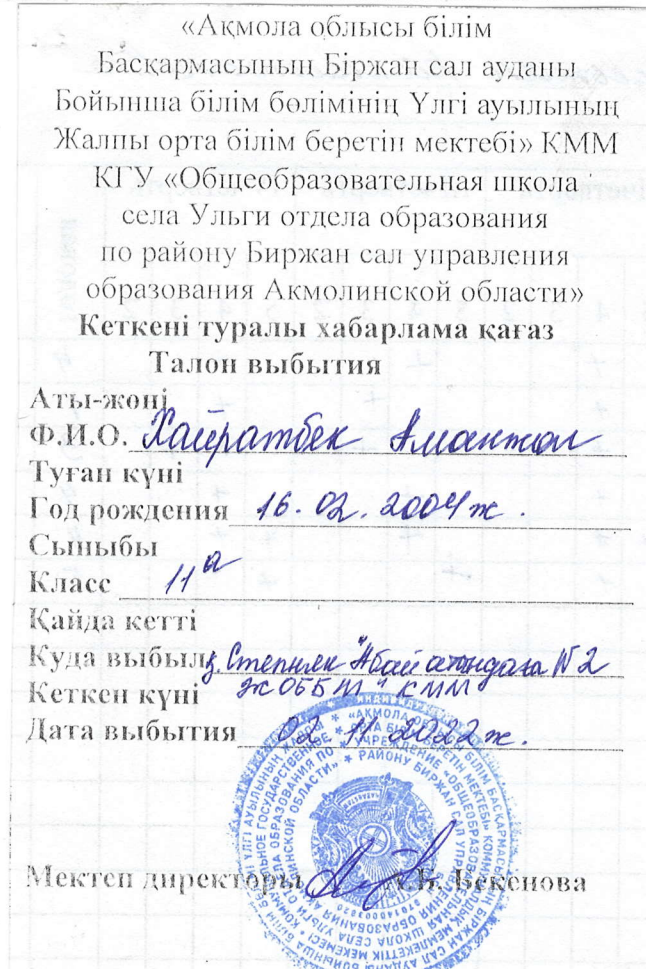 «Ақмола облысы білім
Басқармасының Біржан сал ауданы
Бойынша білім бөлімінің Үлгі ауылының
Жалпы орта білім беретін мектебі» КММ
КГУ «Общеобразовательная школа
села Ульги отдела образования
по району Биржан сал управления
образования Акмолинской области»
Кеткені туралы хабарлама қағаз
Талон выбытия
Аты-жөні
Ф.И.О. Хайратбек Аманжол
Туған күні
Год рождения 16.02.2004ж.
Сыныбы
Класс 11 а
Қайда кетті
Куда выбыл қ.Степняк "Абай атындағы №2
Кеткен күні ЖОББМ" КММ
Дата выбытия 02 11 2022ж.
Мектеп директоры А.Б. Бекенова